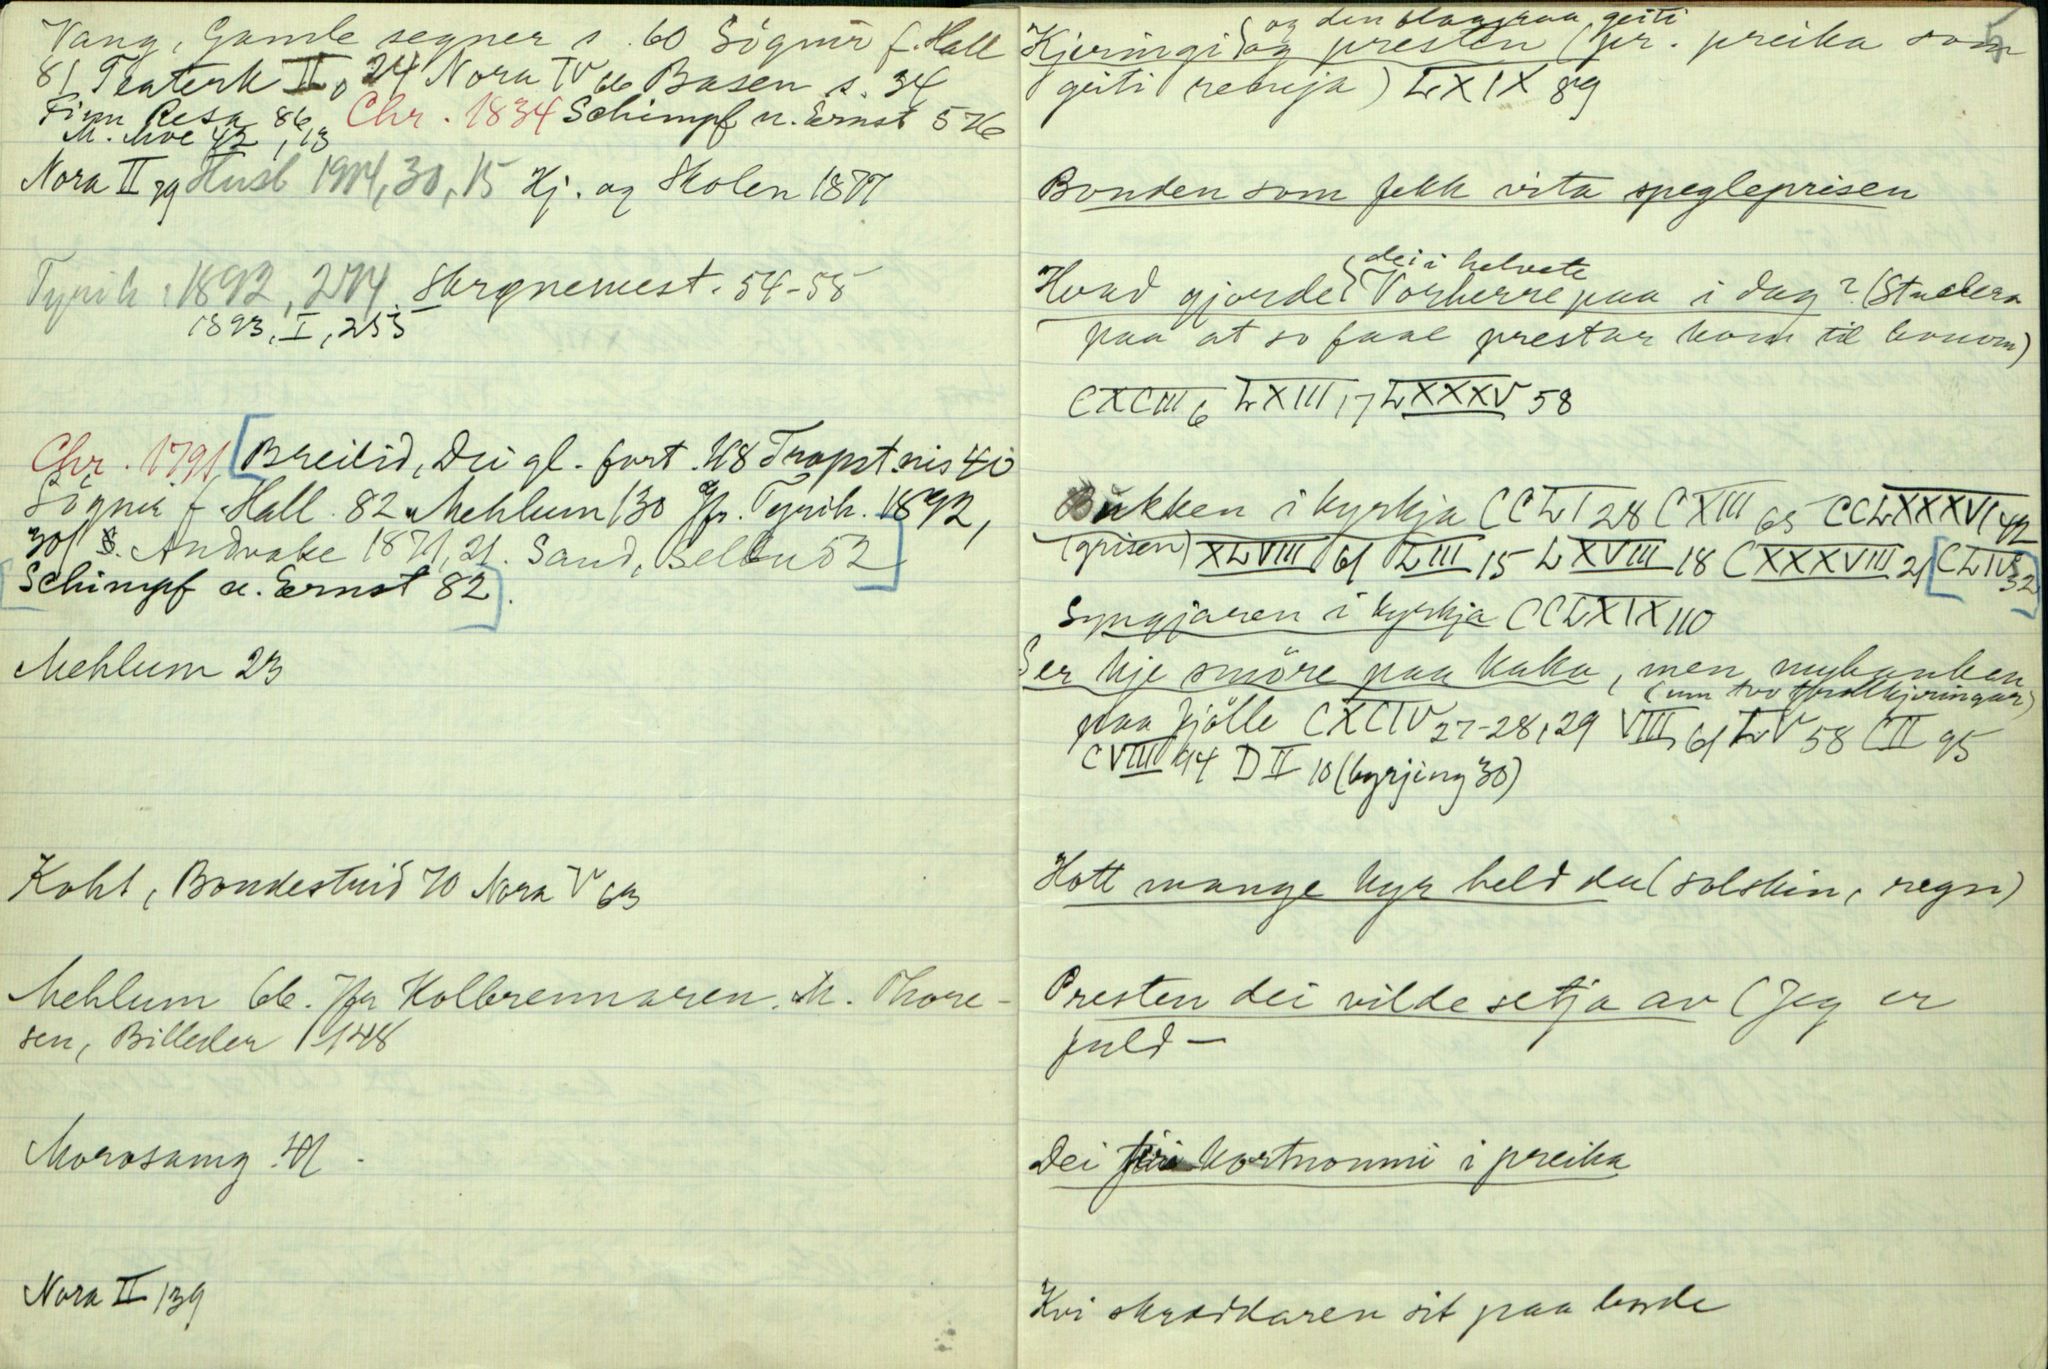 Vang, Gamle segner s. 60 Sögnir f. Hall
81 Teaterk II, 24 Nora IV 66 Basen s. 34
Finn Resa 86, Chr. 1834 Schimpf u. Ernst 576
M. Moe 42, 13
Nora II 79 Husl 1904, 30, 15 Hj. og Skolen 1877
Tyrih. 1892, 274. Skrønemest. 54-58
1893, I, 253
Chr. 1791 [Breilid, Dei gl. fort. 48 Tropst. nis 40
Sögnir f. Hall. 82 Mehlum 130 Jfr. Tyrih. 1892,
301 S. Andvake 1871, 21. Sand, Selbu 52]
[Schimpf u. Ernst 82].
Mehlum 23
Koht, Bondestrid 70 Nora V 63
Mehlum 66. Jfr Kolbrennaren. M. Thore-
sen, Billeder 148
Morosamg. 41
Nora II 139
5
og den blaagraa geiti
Kjeringi og presten (pr. preika som
geiti remja) LXIX 89
Bonden som fekk vita spegleprisen
dei i helvete
Hvad gjorde Vorherre paa i dag? (Studera
paa at so faae prestar kom til honom)
CXCIII 6 LXIII 17 LXXXV 58
Bukken i kyrkja CCLI 28 CXIII 65 CCLXXXVI 42
(grisen) XLVIII 61 LIII 15 LXVIII 18 CXXXVIII 21 [CLIV 32]
Syngjaren i kyrkja CCLXIX 110
Ser kje smöre paa kaka, men myhanken
(um tvo trollkjeringar)
paa fjölle CXCIV 27-28, 29 VIII 61 LV 58 CII 95
CVIII 94 DII 10 (byrjing 30)
Kott mange kyr held du (solskin, regn)
Presten dei vilde setja av (Jeg er
fuld —
Dei kortnomni i preika
Kvi skræddaren sit paa borde